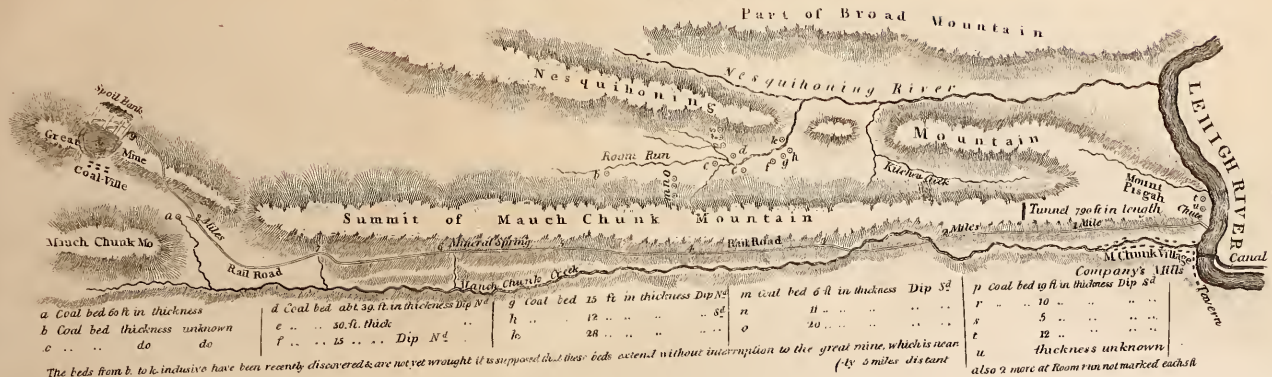 Part of Broad Mountain
Nesquihoning River
Nesquihoning
Mountain
LEHIGH RIVER
Spoil Bank
Great Mine
Coal-Ville
Room Run
Kitchen Creek
Mount
Pisgah
Chute
Summit of Mauch Chunk Mountain
Tunnel 790 ft in length
Mauch Chunk Mo
a
8 Miles
Rail Road
6 Mineral Spring
Rail Road
2 Miles
1 Mile
Mauch Chunk Creek
M. Chunk Village
Canal
Company's Mills
Tavern
a Coal bed 60 ft in thickness
b Coal bed thickness unknown
c .. .. do do
d Coal bed abt 39. ft. in thickness Dip Nd
e .. .. 50. ft. thick "
f .. .. 15 .. .. Dip Nd .
g Coal bed 15 ft in thickness Dip Nd
h .. .. 12 .. .. .. Sd
k .. .. 28 .. .. .. ..
m Coal bed 6 ft in thickness Dip Sd
n .. .. 11 .. .. .. ..
o .. .. 20 .. .. .. ..
p Coal bed 19 ft in thickness Dip Sd
r .. .. 10 .. .. .. ..
s .. .. 5 .. .. .. ..
t .. .. 12 .. .. .. ..
u thickness unknown
also 2 more at Room run not marked each 5 ft
The beds from b. to k. inclusive have been recently discovered & are not yet wrought it is supposed that these beds extend without interruption to the great mine, which is near
(-ly 5 miles distant